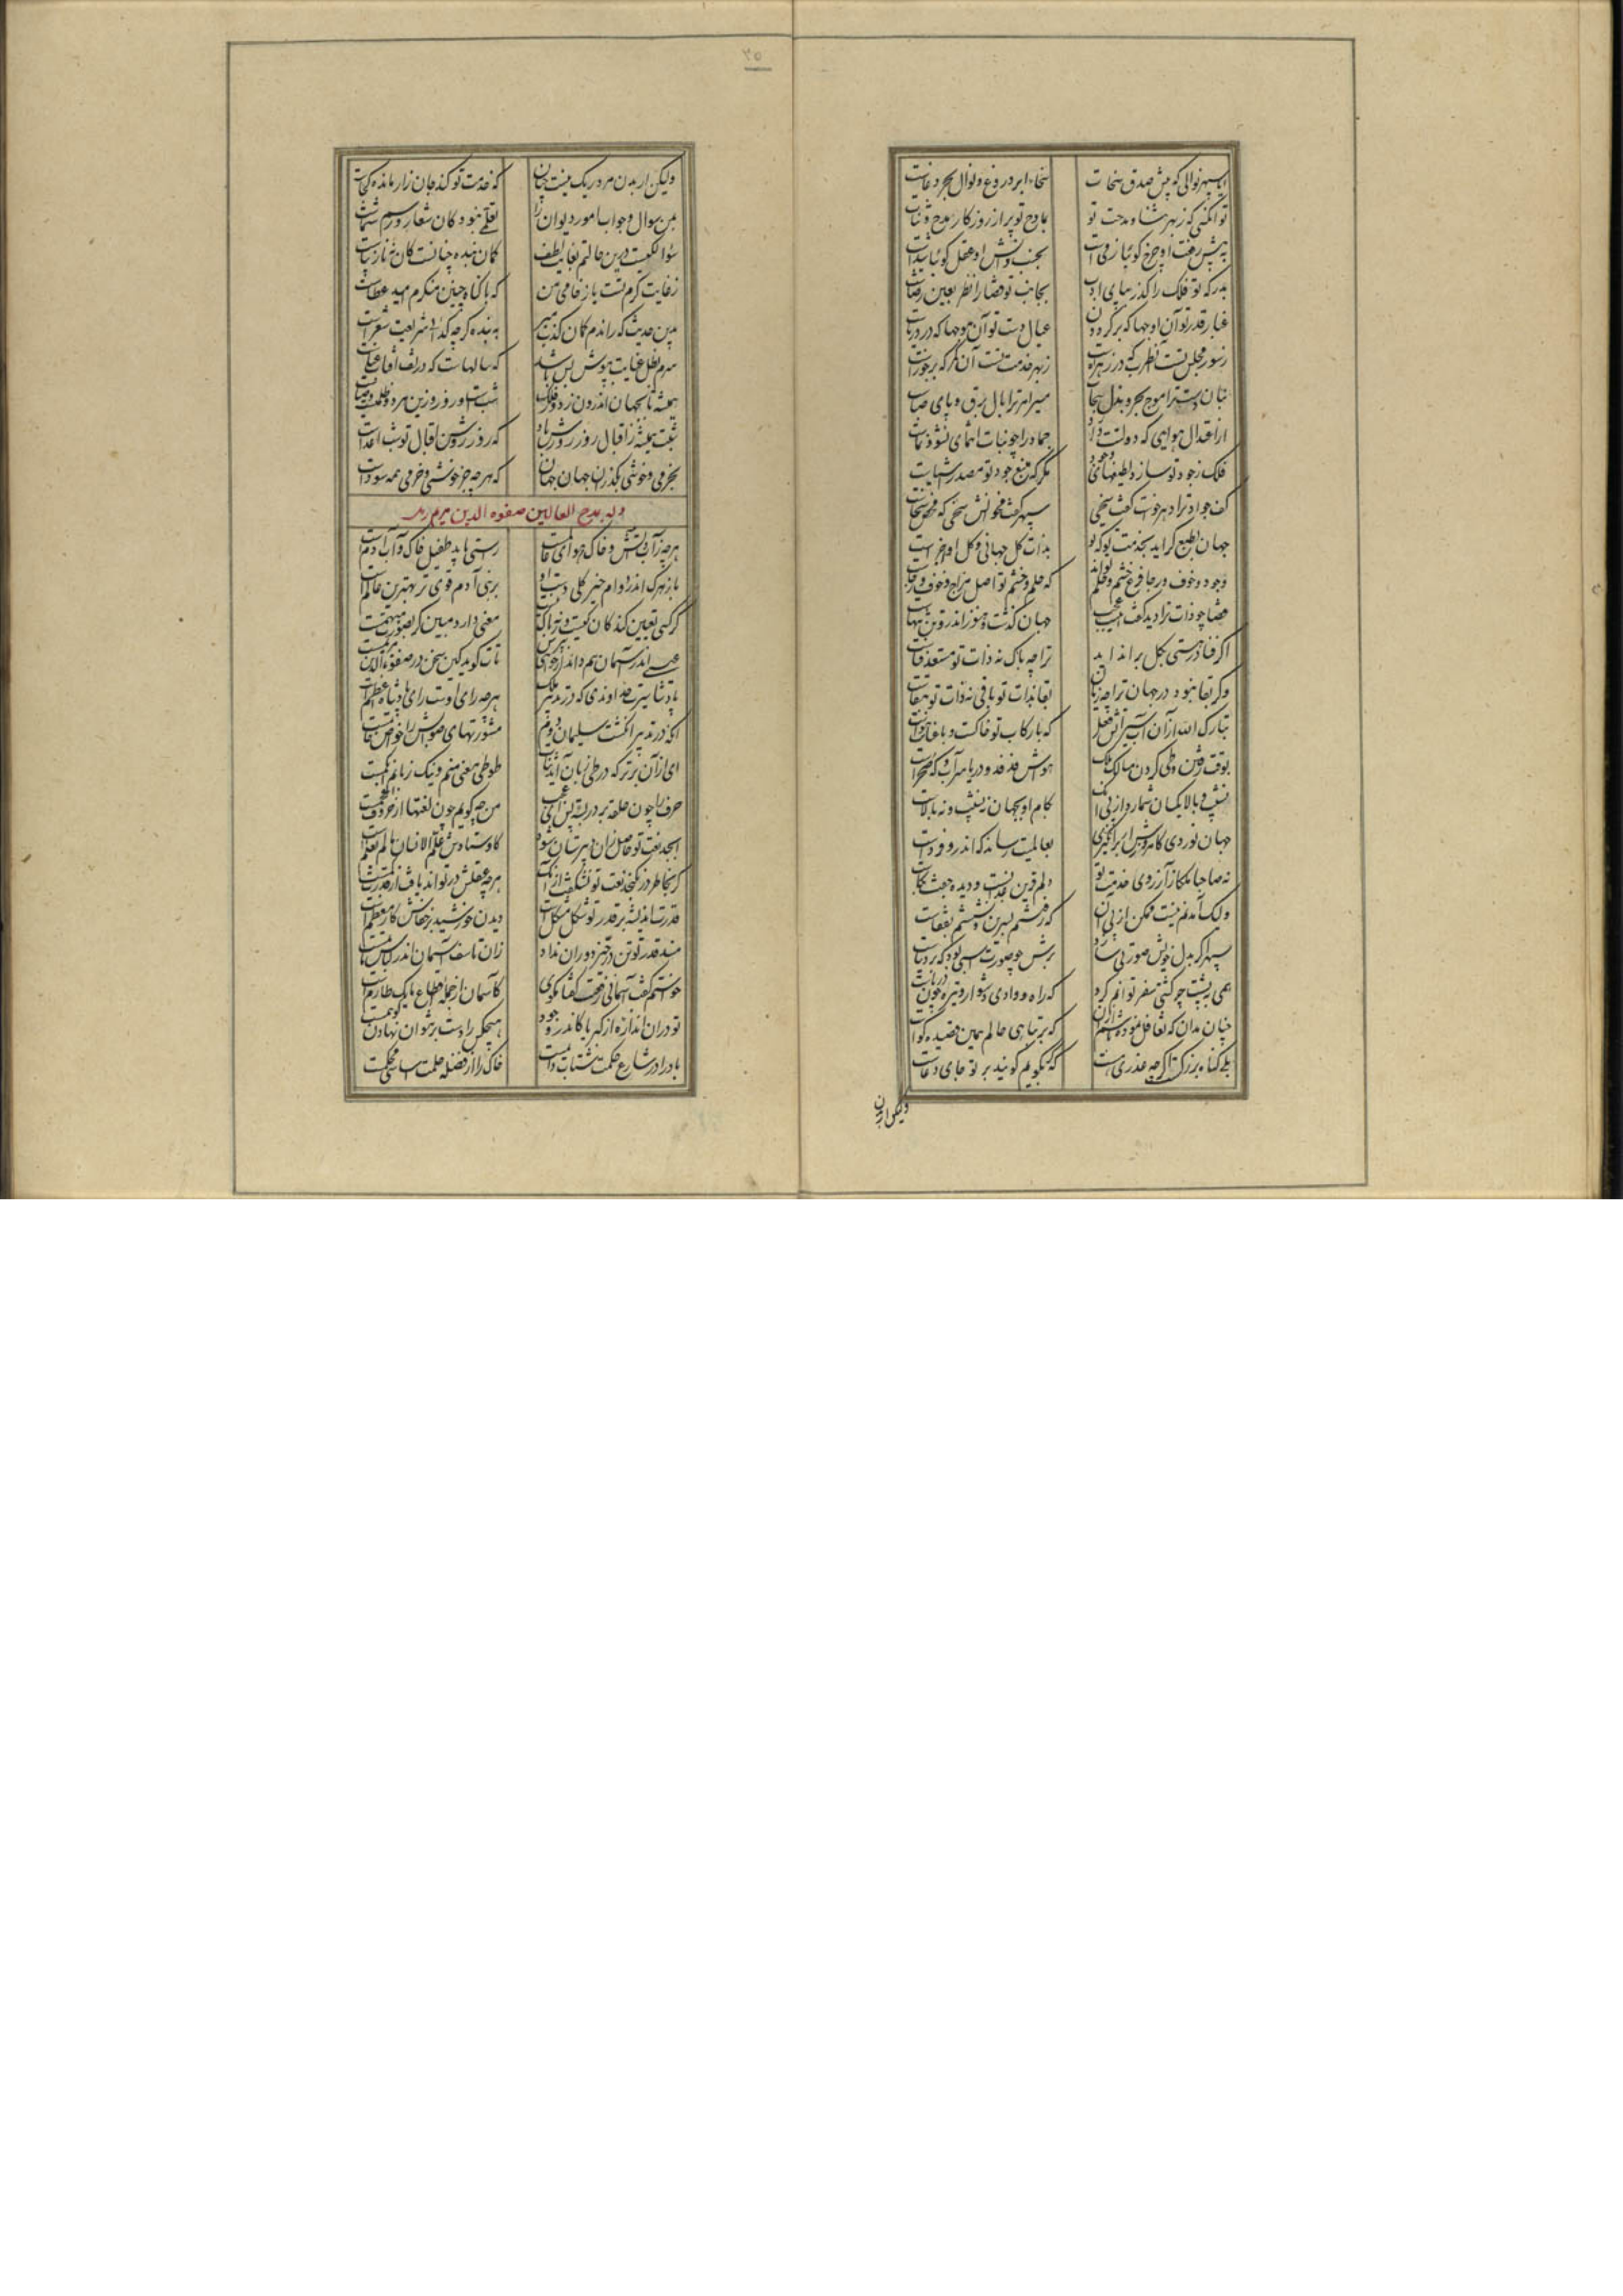 ایا سپهر نوالی که پیش صدق سخات سخاء ابر دروغ و نوال بحر دغاست
توانگری که ز بهر ثنا و مدحت تو مادح تو پر از روزگار مدح و ثناست
به پیش رفعت او چرخ گوئیا بجنب دانش او عقل گوئیا شیداست
بدرگه تو فلک را گذر بپای ادب بجانب تو قضا را نظر بعین رضاست
غبار قدر تو آن اوجها که بر گردون عیال دست تو آن موجها که در دریاست
ز سور مجلس تست آن طرب که در زهره است ز بهر خدمت تست آن کمر که بر جوزاست
بنان دست ترا موج بحر و بذل سحاب سیر امر ترا بال برق و پای صباست
از اعتدال هوایی که دولت تو دارد جماد را چو نبات انتمای نشو و نماست
فلک ز جود تو سازد لطیفهای وجود مگر که منبع جود تو مصدر اشیاست
کف جواد ترا دهر خواست گفت سخی سپهر گفت مخوانش سخی که محض سخاست
جهان بطبع گراید بخدمت تو که تو بذات کل جهانی و کل او اجزاست
وجود و خوف و رجا فرع خشم و حلم تواند که حلم و خشم تو اصل مزاج و خوف و رجاست
قضا چو ذات ترا دید گفت اینت عجب جهان گذشت و هنوز اندرو تن تنهاست
اگر فنا در هستی بگل براند اید ترا چه باک نه ذات تو مستعد فناست
وگر بقا نبود در جهان ترا چه زیان بقا بذات تو باقی نه ذات تو ببقاست
تبارک الله از آن آب سیر آتش فعل که با رکاب تو خاکست و با عنانت هواست
بوقت رفتن و طی کردن مسالک ملک هواش فدفد و دریا سراب و که صحراست
نشیب و بالا یکسان شمارد از پی آنک بگام او بجهان نه نشیب و نه بالاست
جهان نوردی کامروزش ار برانگیزی بعالمیت رساند که اندرو فرداست
نه صاحبا ملکا ز آرزوی خدمت تو دلم قرین عذابست و دیده جفت بکاست
ولیک آمدنم نیست ممکن از پی آن که
سپهر اگر بدل خویش صورتی سازد برش
همی به پشت چو کشتی سفر توانم کرد که راه وادی دشوار و تیره چون دریاست
چنان مدان که تغافل نموده باشم از آن که بر تباهی حالم همین قصیده گواست
بلی گناه بزرگست اگر چه عذری هست که نگویم گویند بر تو جای دعاست
ولیکن ار بدن
۳۵
ولیکن ار بدن مرد ریک نیست چنان که خدمت تو کند جان زار مانده کجاست
من سوال و جواب امور دیوان را تعلقی نبود و کان شعار و رسم شماست
سؤالکیست درین حالتم بغایت لطف گمان بنده چنانست کان نه نازیباست
ز غایت کرم تست یا ز خامی من که با گناه چنین منکرم امید عطاست
بدین حدیث که راندم گمان کذب مبر به بنده گرچه گدائی شریعت شعراست
سرم بظل عنایت بپوش بس باشد که سالهاست که در تف آفتاب عناست
همیشه تا بجهان اندرون ز دور فلک شبست و روز و ز این هر دو ظلمتست و ضیاست
شبت همیشه ز اقبال روز روشن باد که روز روشن اقبال تو شب اعداست
بخرمی و خوشی بگذران جهان جهان که هرچه جز خوشی و خرمی همه سوداست
وله بمدح العالمین صفوه الدین مریم رند
هرچه ز آب و آتش و خاک و هوای عالمست راستی باید طفیل خاک و آب آدمست
باز هرک اندر دوام خیر کلی دست او بر بنی آدم قوی تر بهترین عالمست
گر کسی تعیین کند کان کیست ور نه باک نیست معنی دارد مبین گر بصورت مبهمست
عیسی اندر آسمان هم داند ار خواهی بپرس تات گوید کین سخن در صفوة الدین مریمست
پادشا سیرت خداوندی که در تدبیر ملک هرچه رای اوست رای پادشاه اعظمست
آنکه در تدبیر انگشت سلیمان دوم مشورتهای صوابش را خواص خاتمست
ای از آن برتر که در طی زبان آید ثنات طوطی معنی منم و اینک زبانم ابکمست
حرفها چون حلقه بر در بسته پس این عجب من چگویم چون لغتها از حروف معجمست
ابجد نعت تو حاصل زان دبیرستان شود کاوستادش علم الانسان ما لم یعلمست
گر بخاطر در نگنجد نعت تو نشکفت از آنک هرچه عقلش در تواند یافت از قدرت کمست
قدرتت اندیشه بر قدر تو شکل مشکل است دیدن خورشید بر خفاش کار معظم است
مسند قدر تو تن در حیز دوران نداد زان تاسف آسمان اندر لباس ماتمست
خواستم گفت آسمانی رفعتت گفتا مگوی کآسمان از جمله اقطاع ما یک طارم است
تو در آن اندازه ای از کبریا کاندر وجود هیچکس را دست برتوان نهادن
باد را در شارع حکمت شتابی دایمست خاک را از فضله حلمت اساسی محکمست